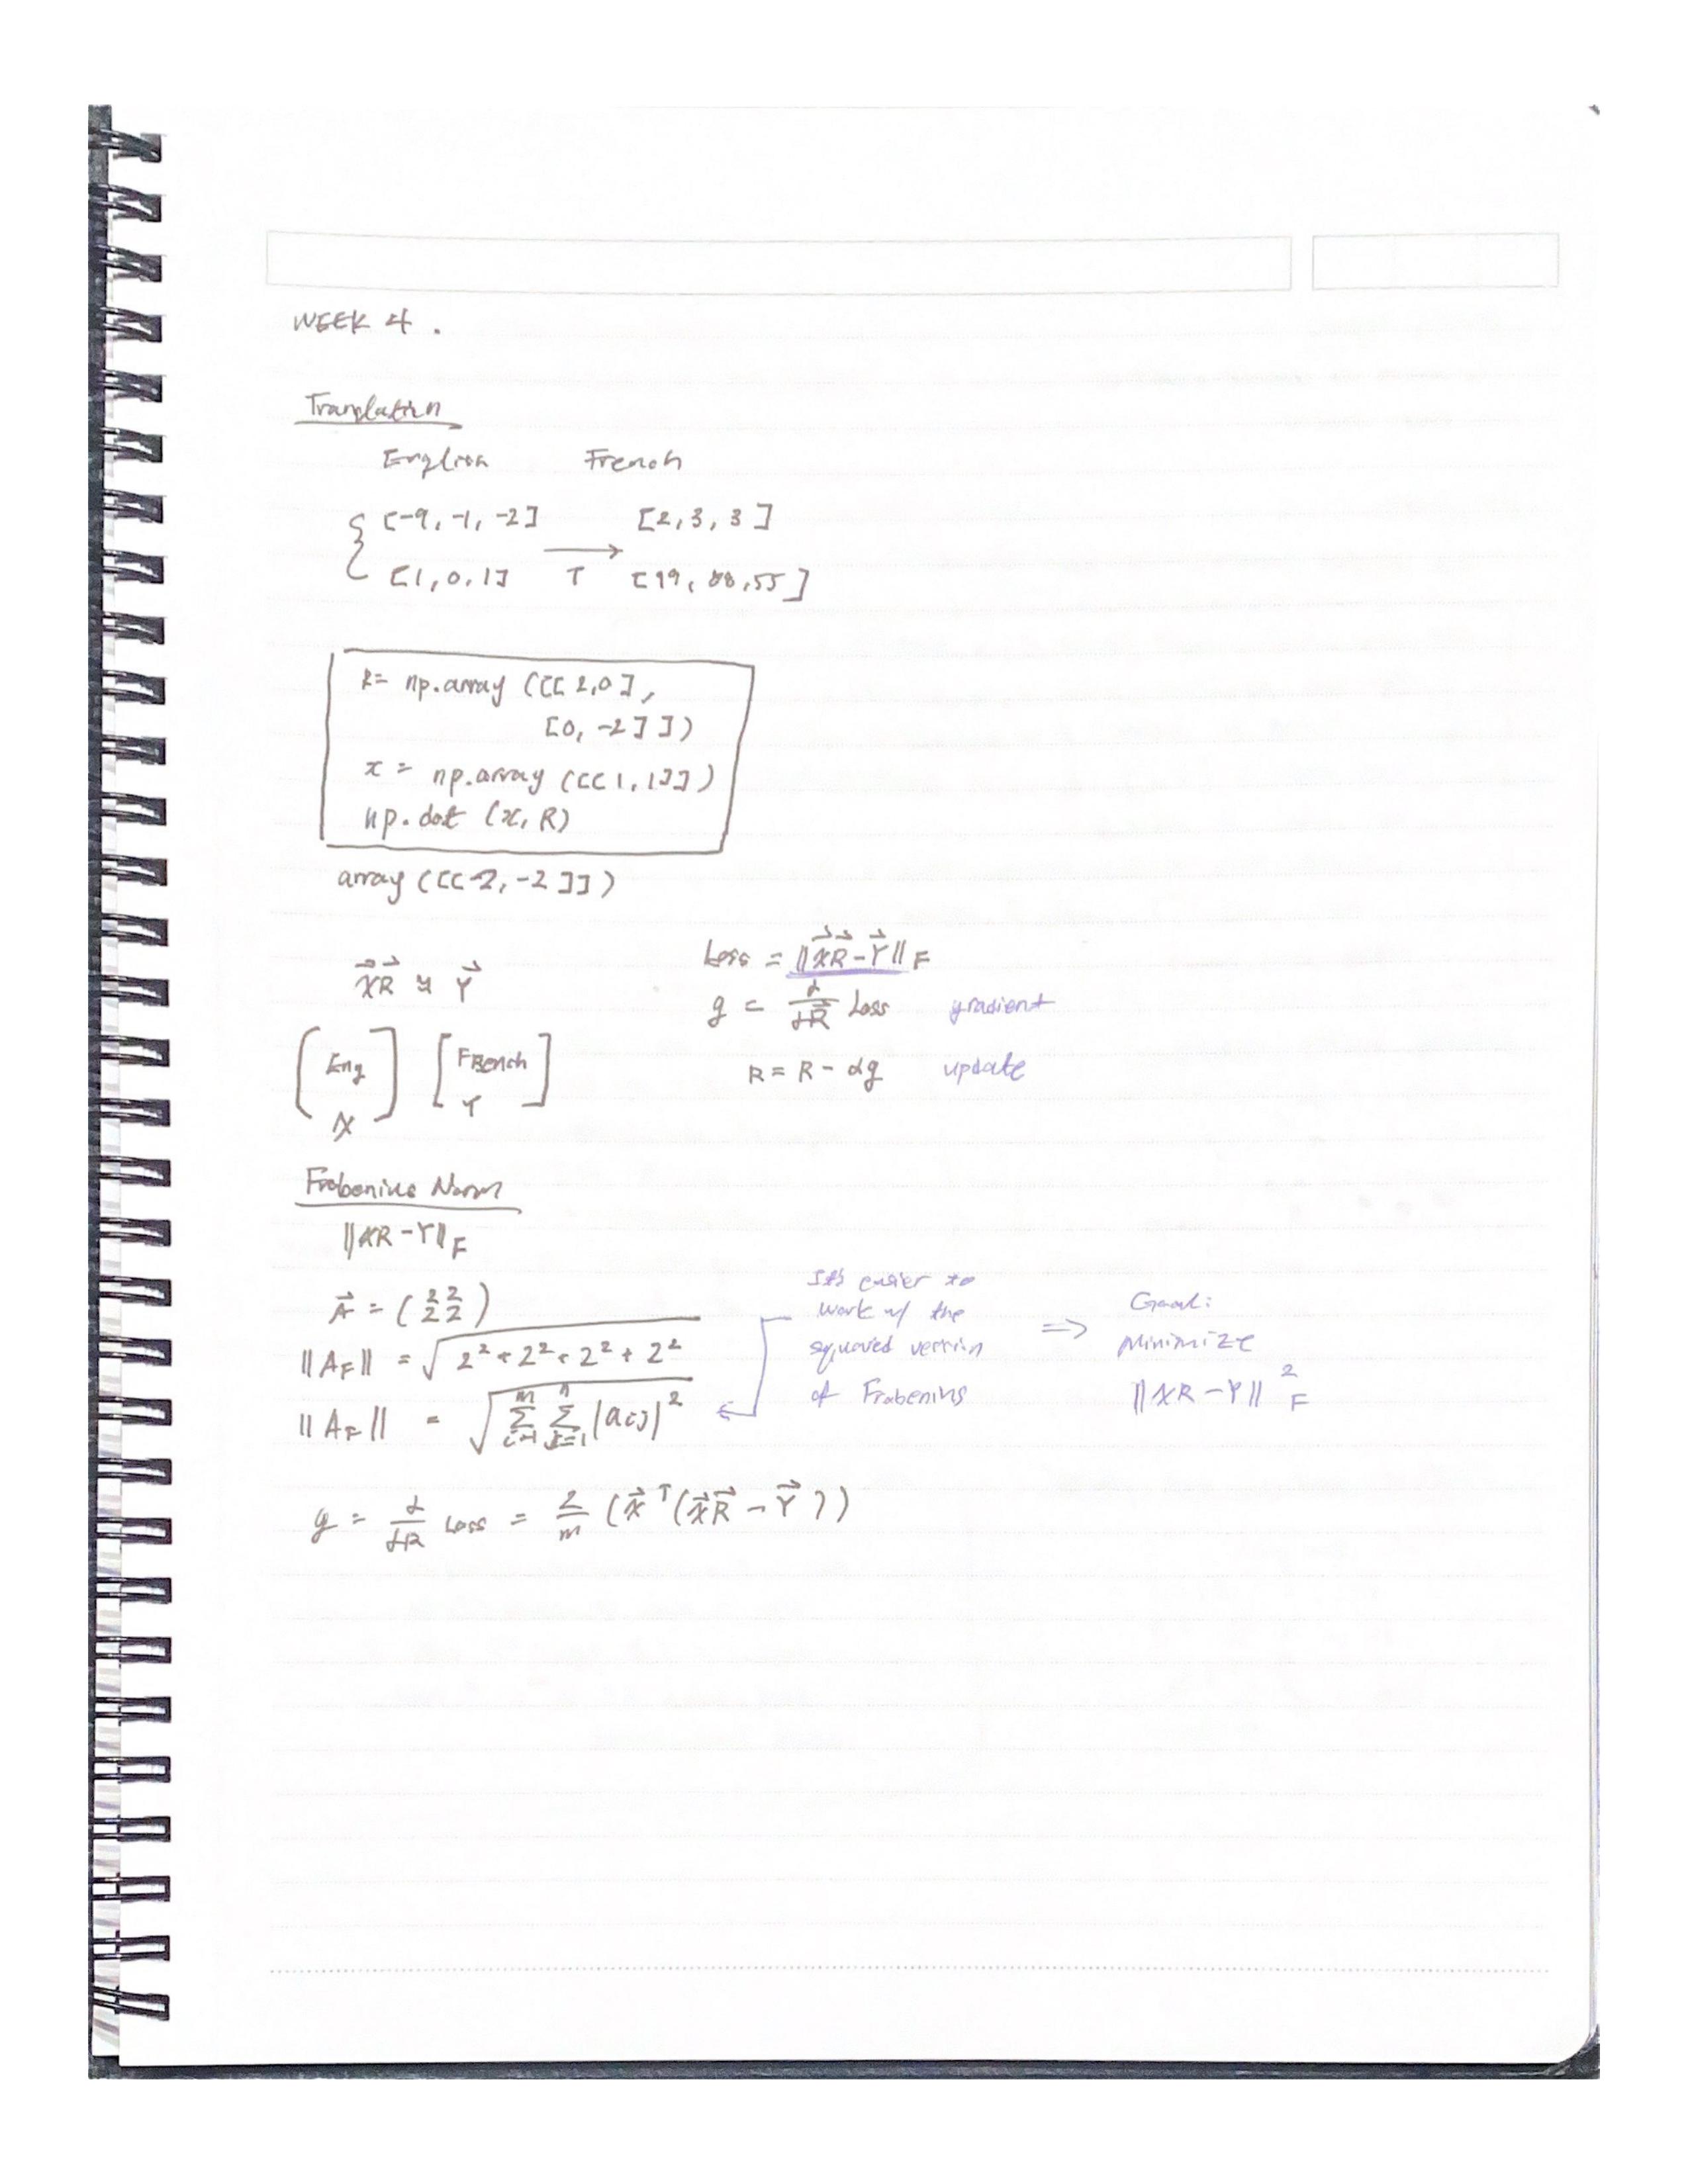 WEEK 4.
Translation
English French
[-9, -1, -2] [2, 3, 3]
[1, 0, 1] → T [19, 88, 55]
R = np.array ([[2,0],
[0, -2]])
x = np.array ([[1, 1]])
np.dot (x, R)
array ([[2, -2]])
XR ≈ Y
Loss = ||XR - Y||F
g = d/dR Loss gradient
R = R - αg update
[Eng X] [French Y]
Frobenius Norm
||XR - Y||F
A = (2 2
2 2)
||AF|| = √(2² + 2² + 2² + 2²)
||AF|| = √(Σ i=1 m Σ j=1 n |aij|²)
It's easier to
work w/ the
squared version
of Frobenius
⇒ Goal:
Minimize
||XR - Y||²F
g = d/dR Loss = 2/m (Xᵀ(XR - Y))